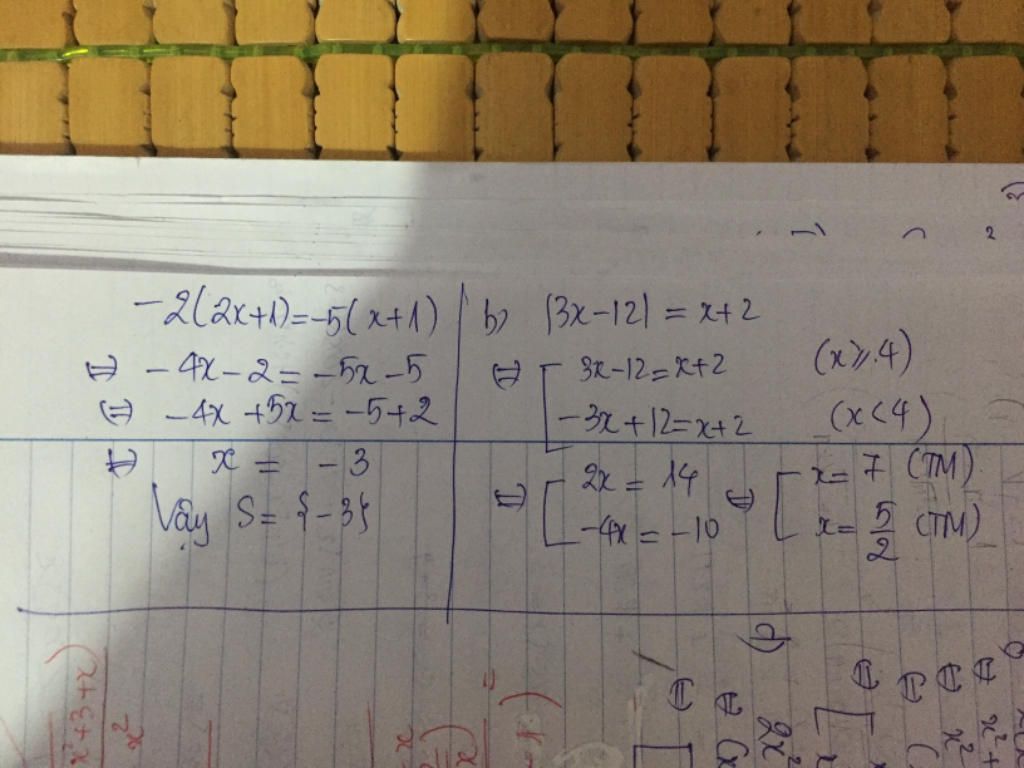 -2(2x+1)=-5(x+1)
⇔ -4x-2=-5x-5
⇔ -4x+5x=-5+2
⇔ x = -3
Vậy S={-3}
b) |3x-12| = x+2
⇔ [ 3x-12=x+2 (x⩾4)
-3x+12=x+2 (x<4)
⇔ [ 2x = 14 ⇔ [ x= 7 (TM)
-4x = -10 x= 5/2 (TM)
x²+3+x)
x²